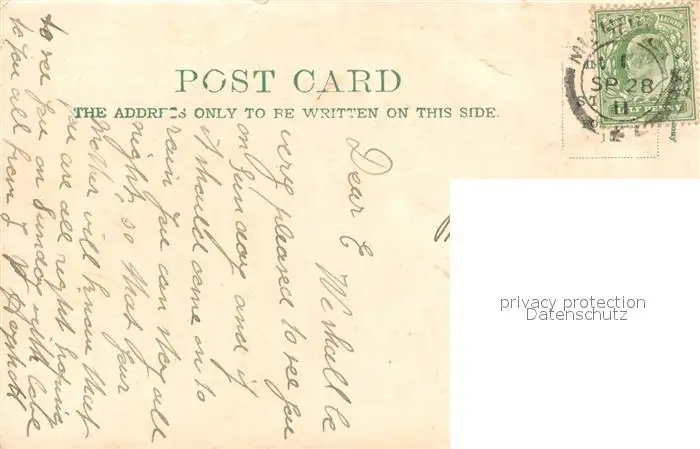 POST CARD
THE ADDRESS ONLY TO BE WRITTEN ON THIS SIDE.
SP 28
11
privacy protection
Datenschutz
Dear E We shall be
very pleased to see you
on Sunday and if
it should come on to
rain you can stay all
night, so that your
Mother will know that
you are all right hoping
to see you on Sunday with love
to you all from J